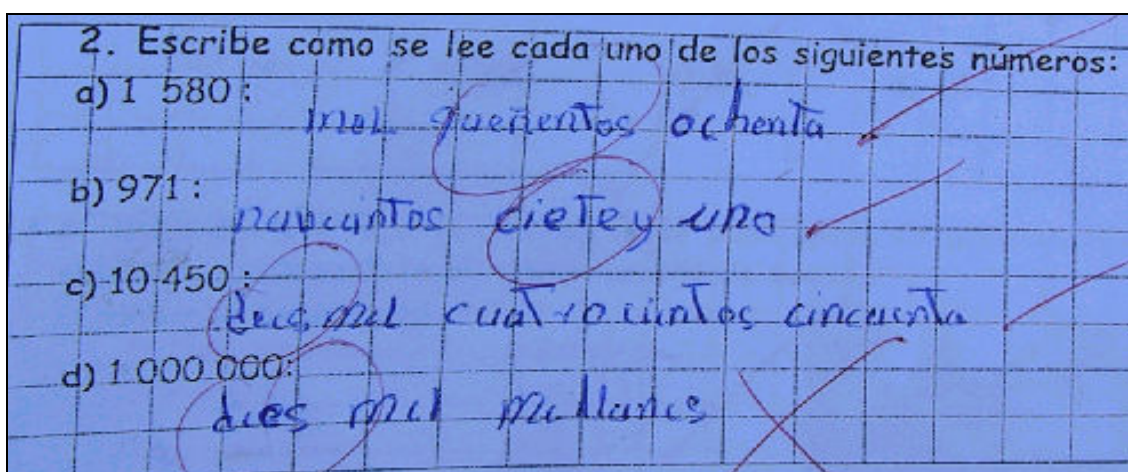 2. Escribe como se lee cada uno de los siguientes números:
a) 1 580:
mel queñentos ochenta
b) 971:
naveuintos ciete y uno
c) 10 450:
dies mil cuatro cientos cincuenta
d) 1 000 000:
dies mil millones